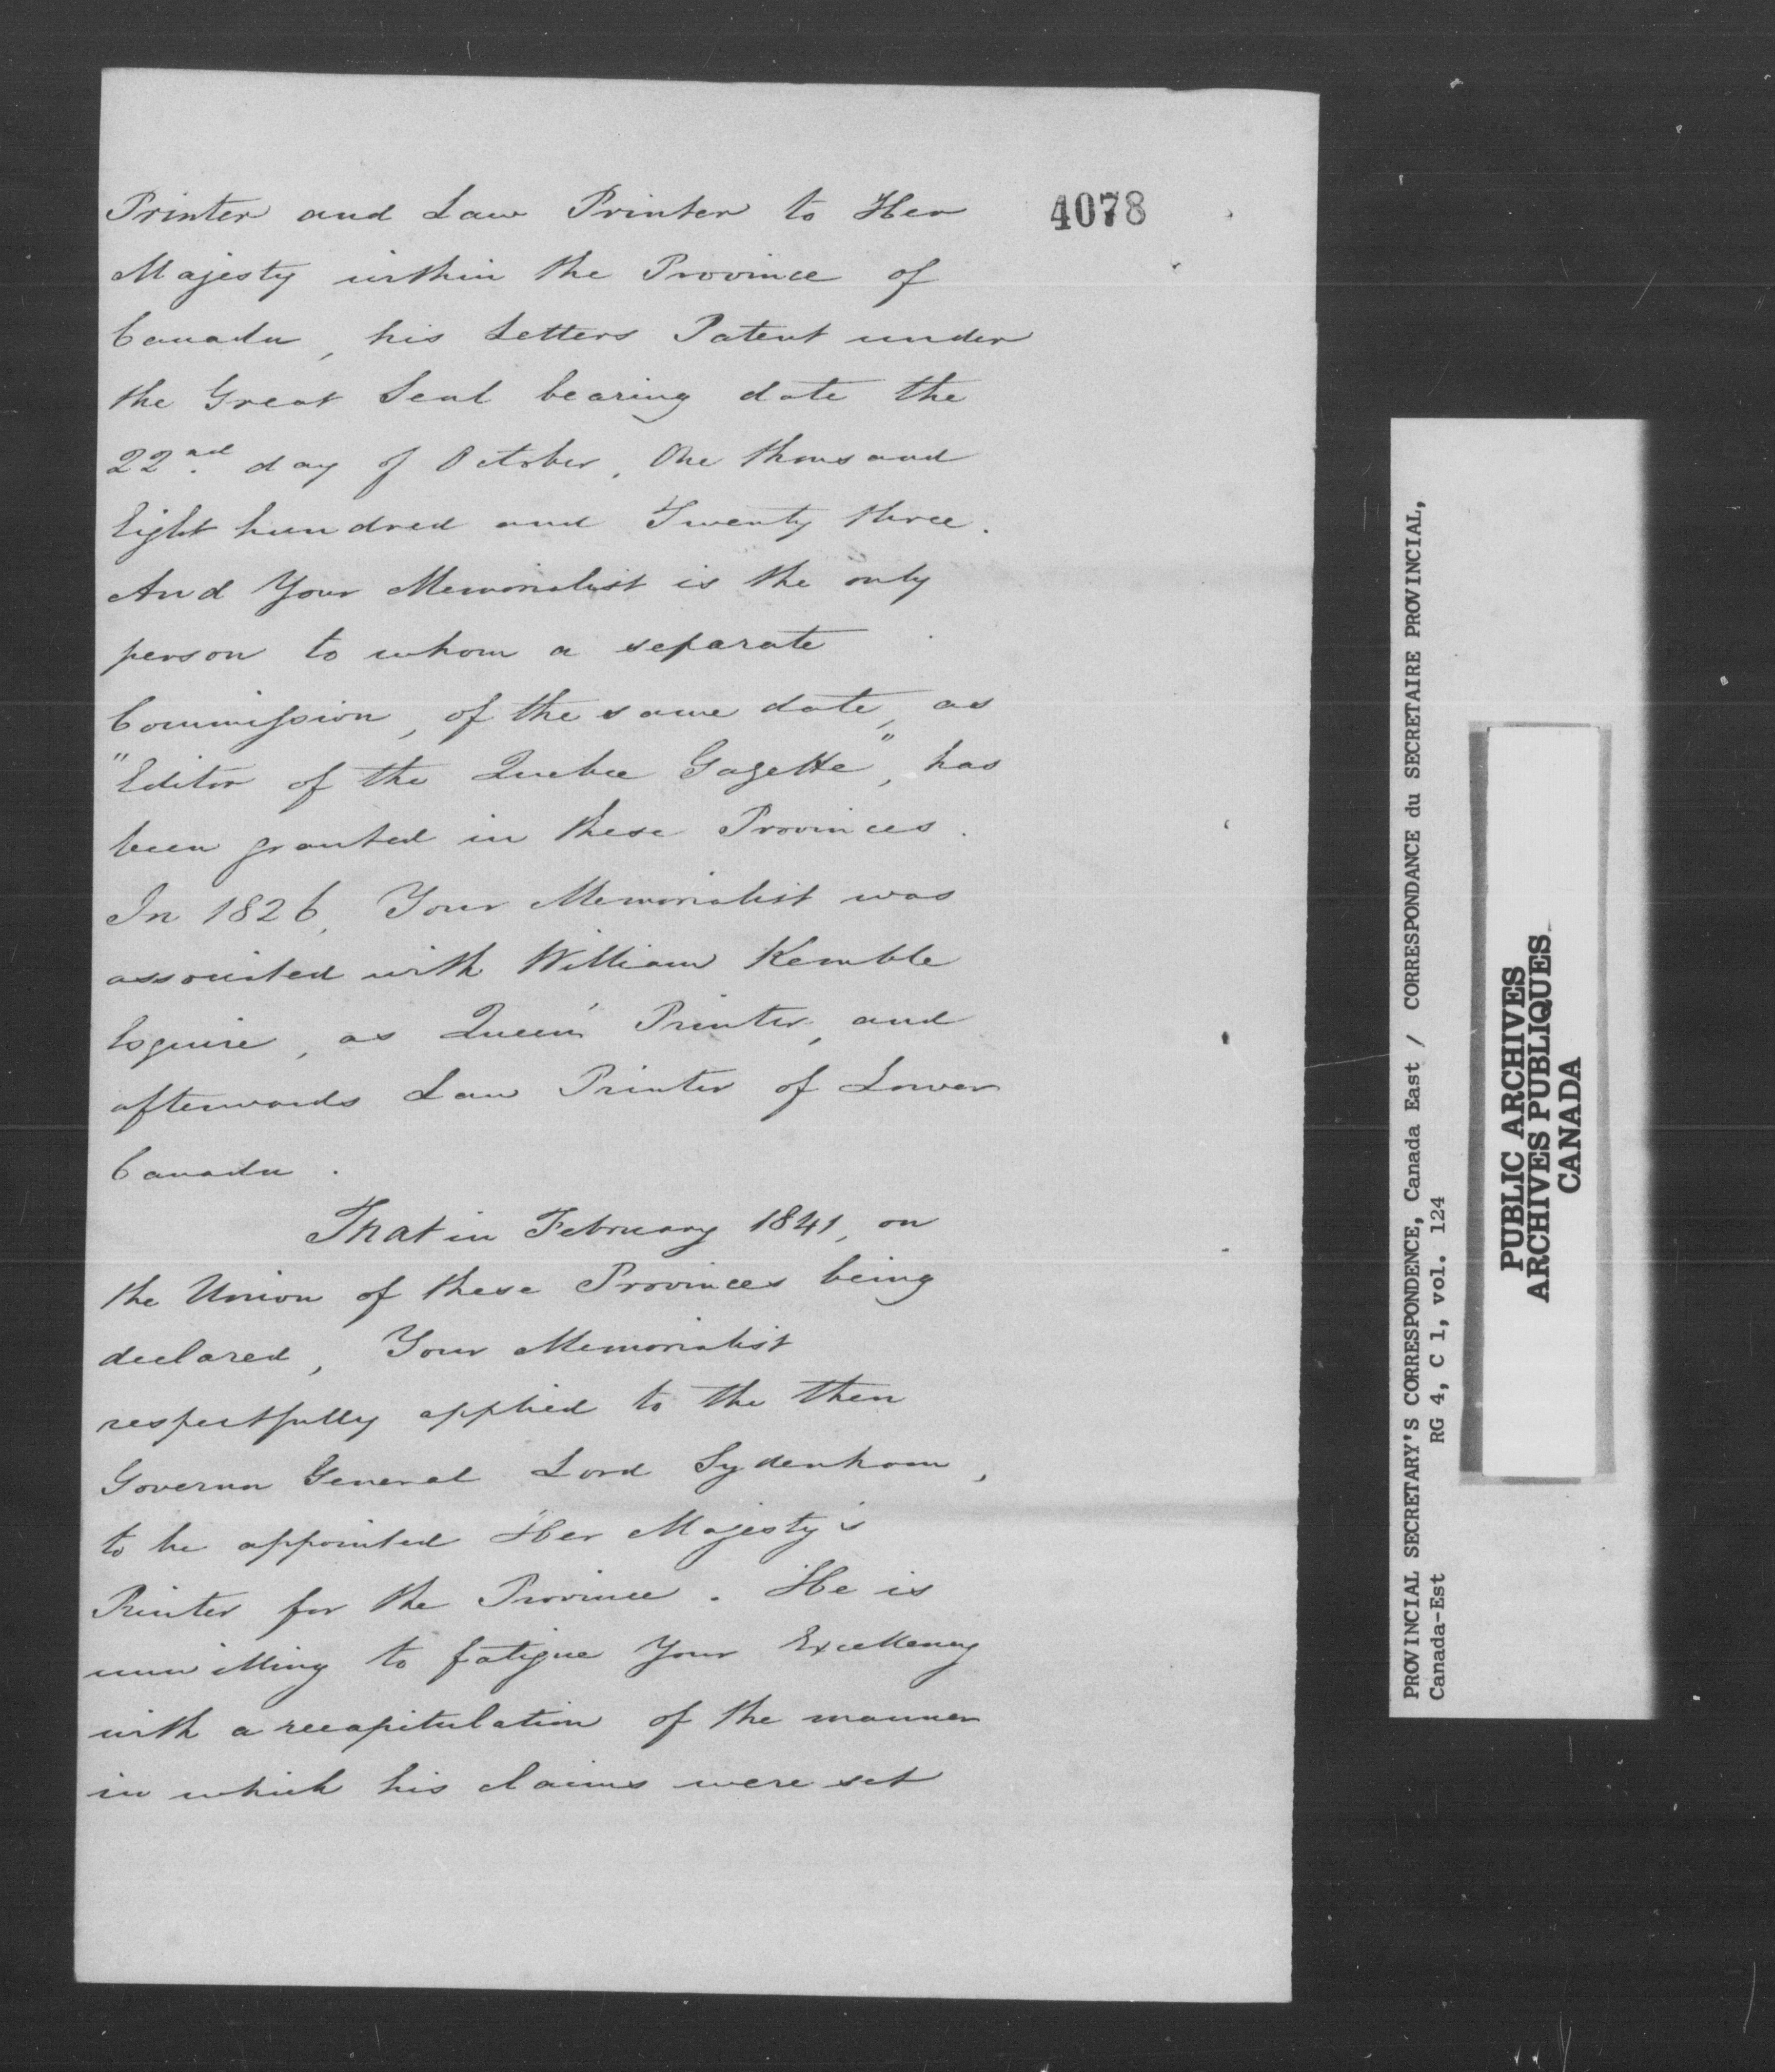 4078
Printer and Law Printer to Her
Majesty within the Province of
Canada, his Letters Patent under
the Great Seal bearing date the
22nd day of October, One thousand
Eight hundred and Twenty three.
And Your Memorialist is the only
person to whom a separate
Commission, of the same date, as
"Editor of the Quebec Gazette", has
been granted in these Provinces.
In 1826, Your Memorialist was
associated with William Kemble
Esquire, as Queen's Printer, and
afterwards Law Printer of Lower
Canada.
That in February 1841, on
the Union of these Provinces being
declared, Your Memorialist
respectfully applied to the then
Governor General Lord Sydenham,
to be appointed Her Majesty's
Printer for the Province. He is
unwilling to fatigue Your Excellency
with a recapitulation of the manner
in which his claims were set
PROVINCIAL SECRETARY'S CORRESPONDENCE, Canada East / CORRESPONDANCE du SECRETAIRE PROVINCIAL,
Canada-Est RG 4, C 1, vol. 124
PUBLIC ARCHIVES
ARCHIVES PUBLIQUES
CANADA